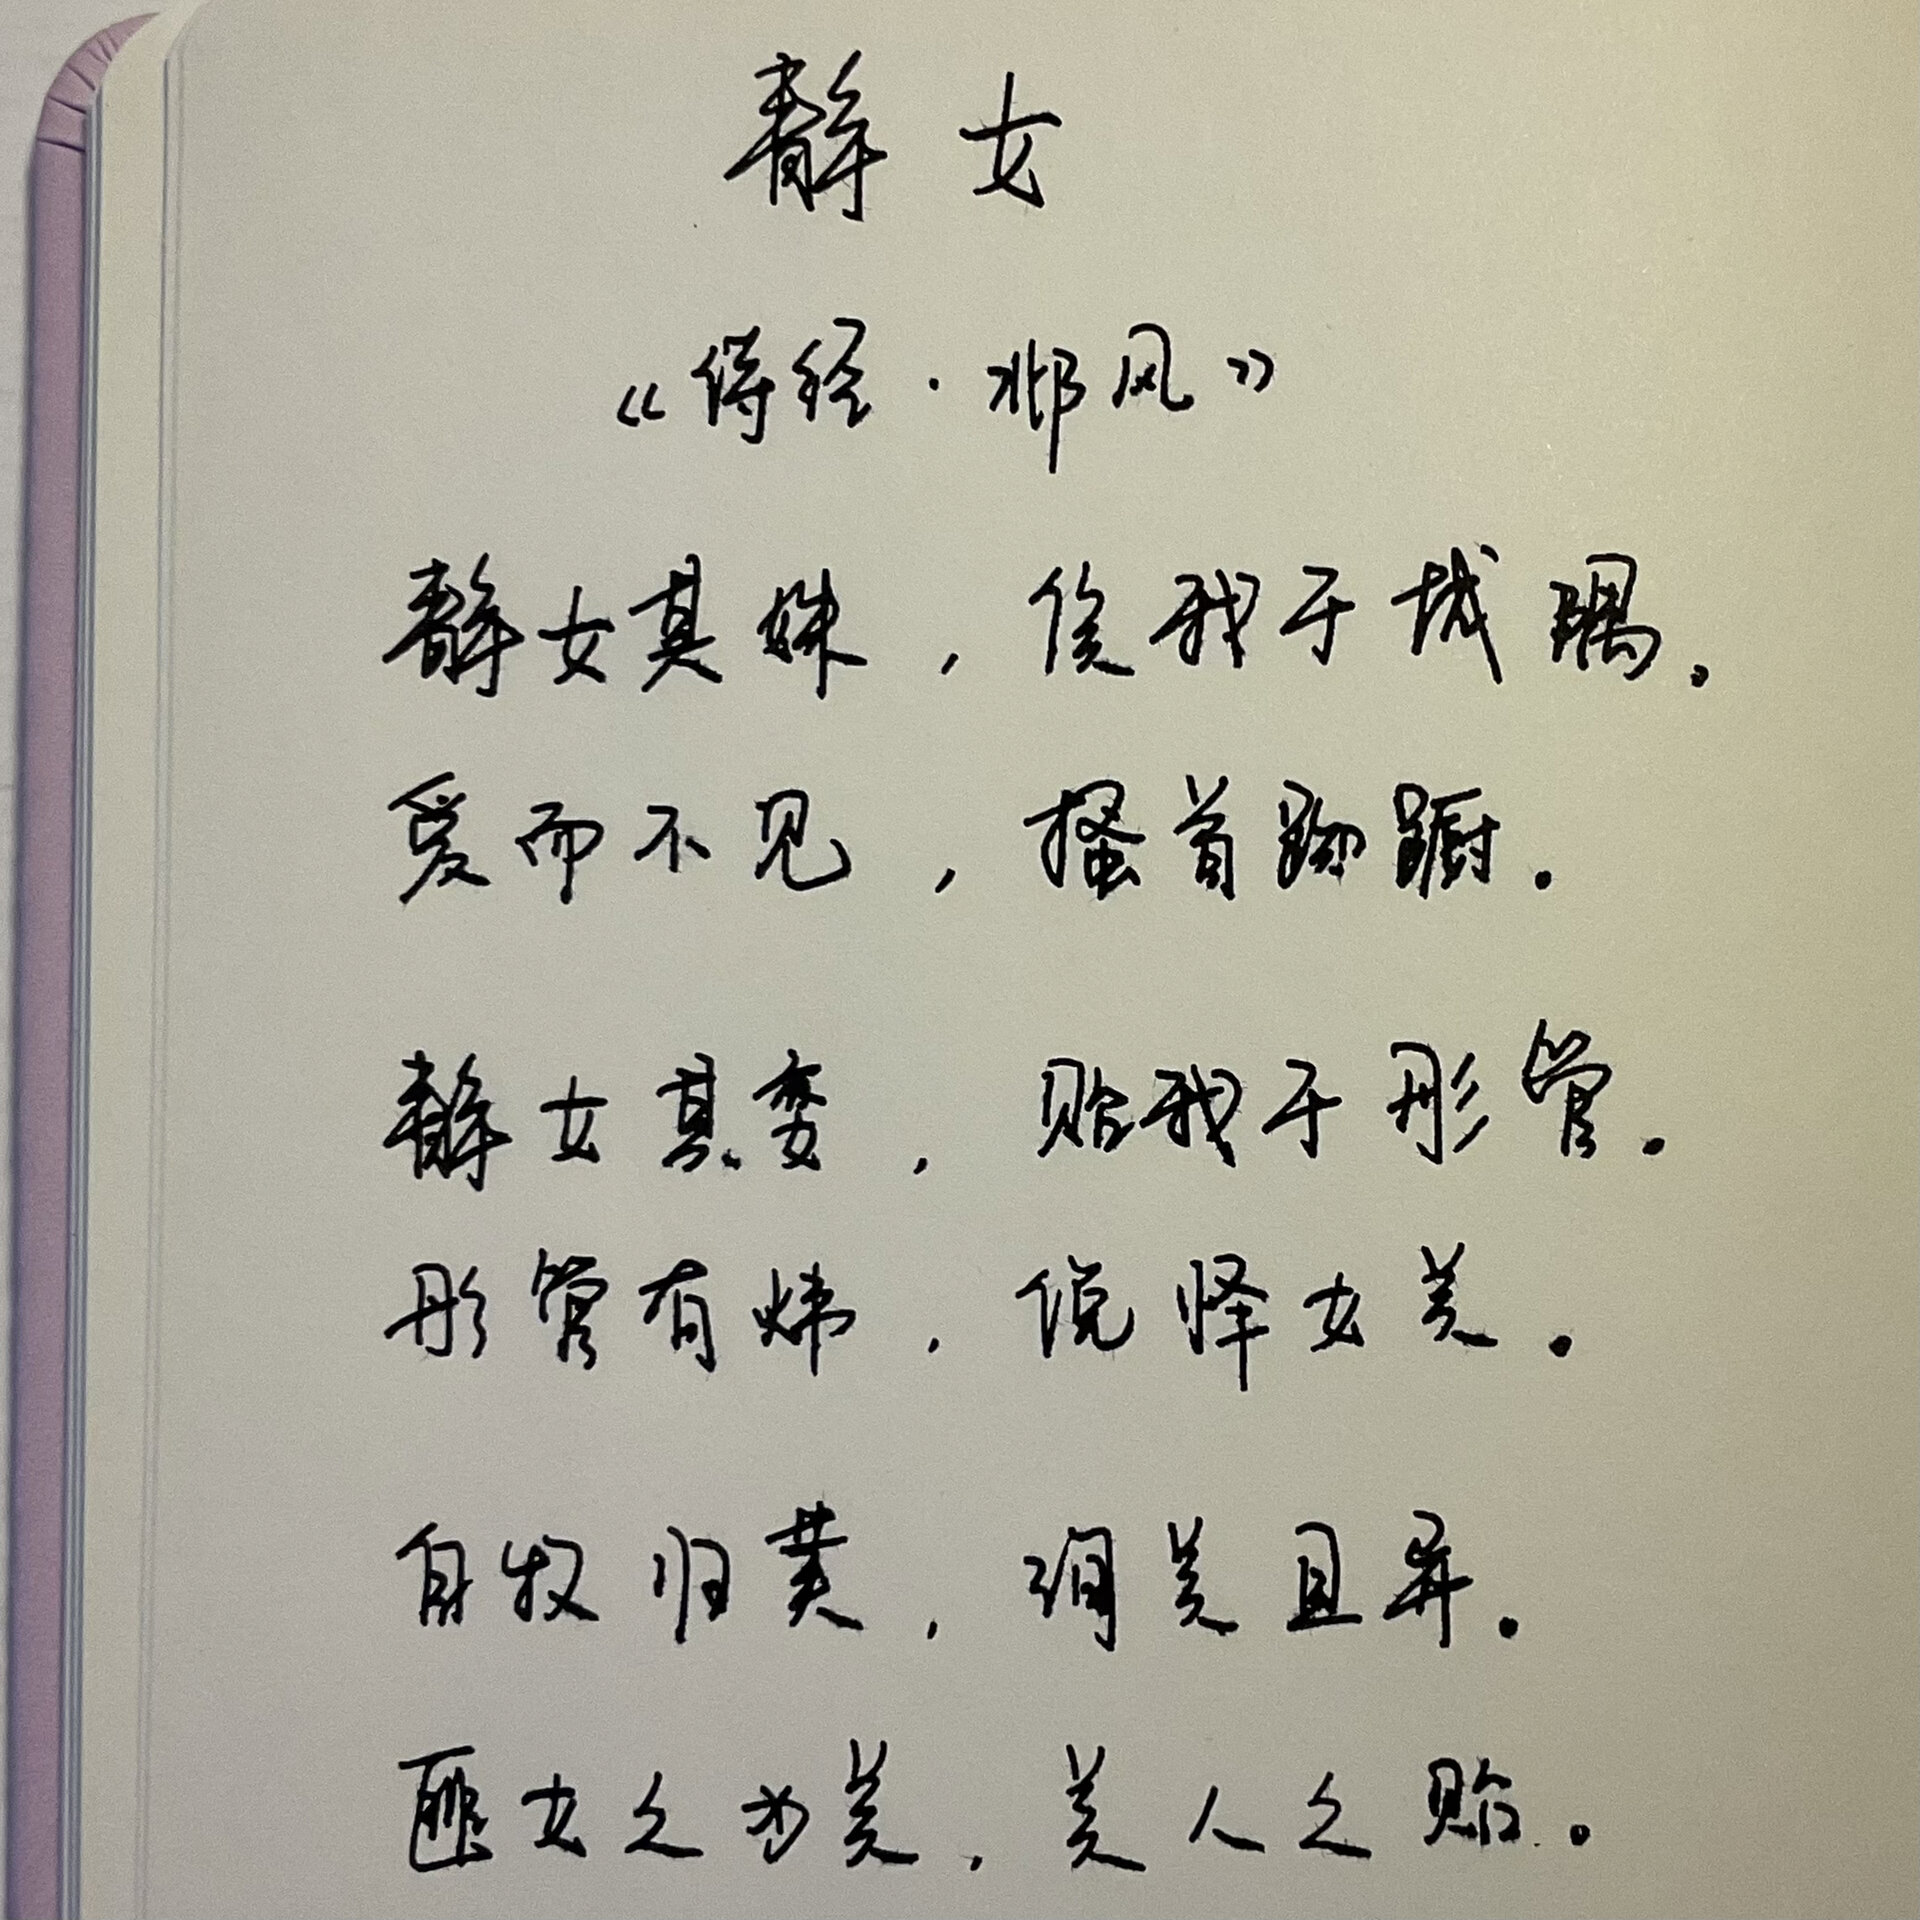 静女
《诗经·邶风》
静女其姝，俟我于城隅。
爱而不见，搔首踟蹰。
静女其娈，贻我于彤管。
彤管有炜，说怿女美。
自牧归荑，洵美且异。
匪女之为美，美人之贻。